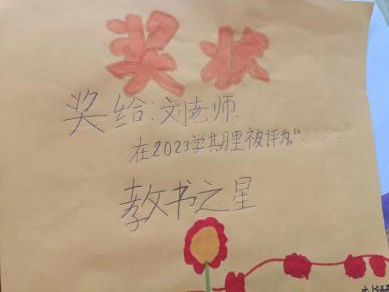 奖状
奖给:刘老师
在2023学期里被评为“
教书之星